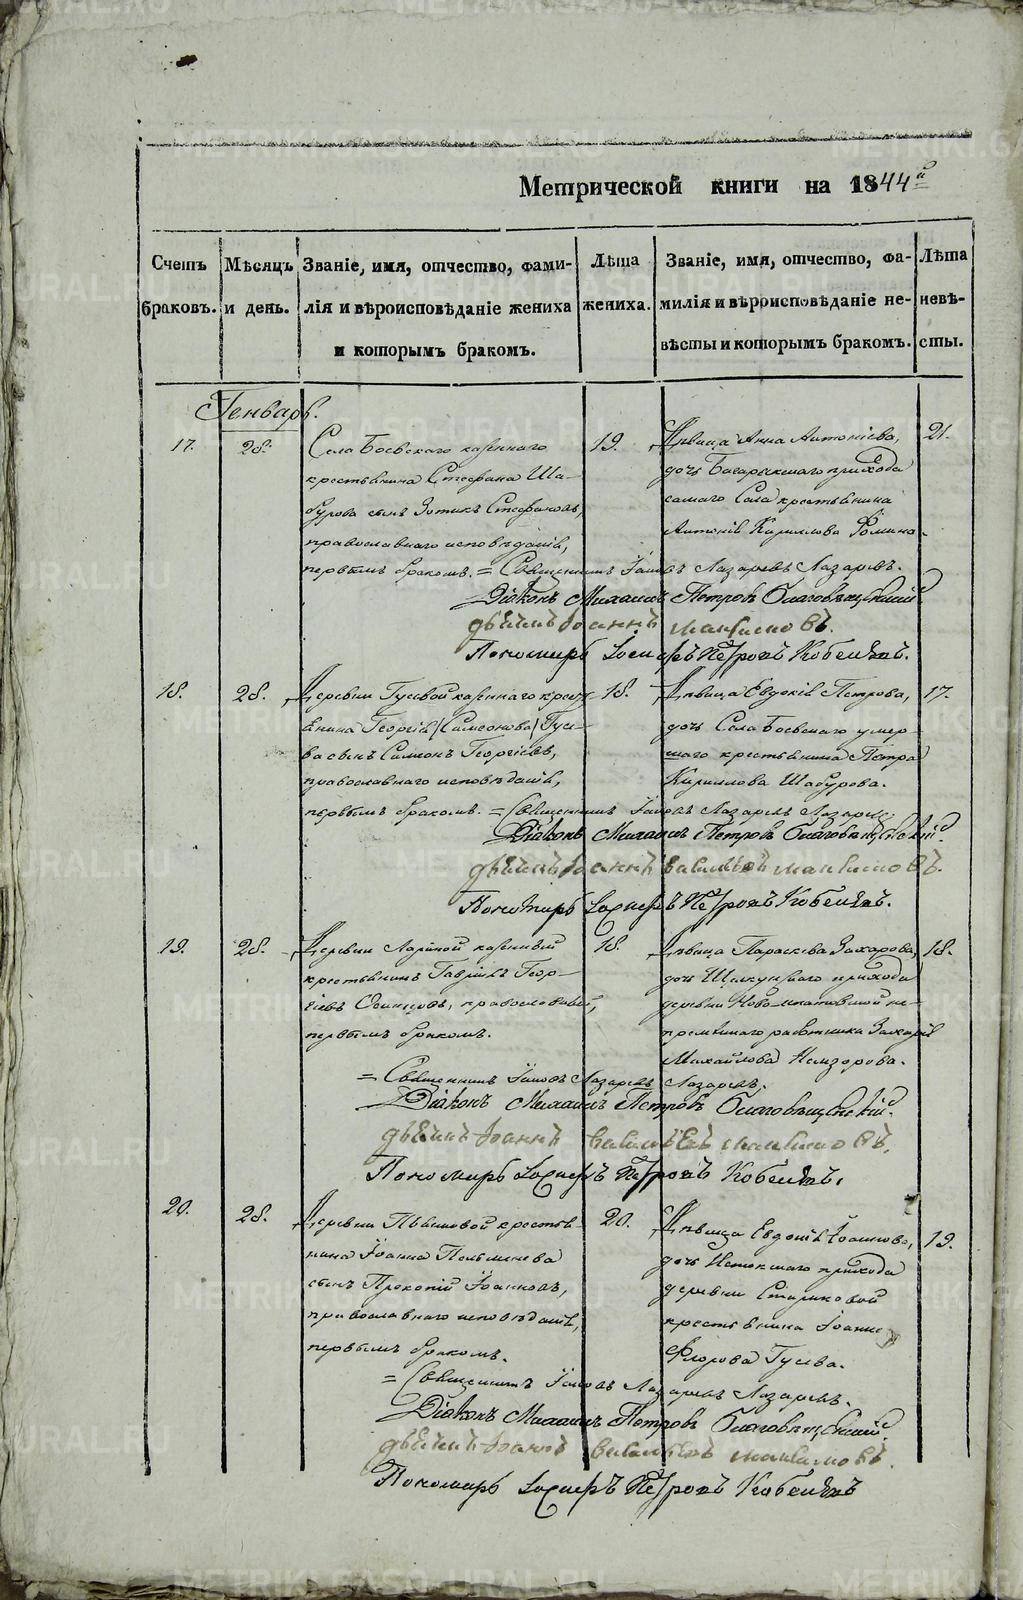 Метрической книги на 1844й
Счетъ браковъ.
Мѣсяцъ и день.
Званіе, имя, отчество, фамилія и вѣроисповѣданіе жениха и которымъ бракомъ.
Лѣта жениха.
Званіе, имя, отчество, фамилія и вѣроисповѣданіе невѣсты и которымъ бракомъ.
Лѣта невѣсты.
Генварь.
17.
28.
Села Боевскаго казеннаго
крестьянина Стефана Ша-
бурова сынъ Зотикъ Стефановъ,
православнаго исповѣданія,
первымъ бракомъ.
19.
Дѣвица Анна Антоніева,
дочь Багарякскаго прихода
самаго Села крестьянина
Антонія Кириллова Ѳомина.
21.
= Священникъ Іаковъ Лазаревъ Лазаревъ.
Діаконъ Михаилъ Петровъ Благовѣщенскій
дьячекъ Іоаннъ
Пономарь Іосифъ Петровъ
18.
28.
Деревни Гусевой казеннаго кресть-
янина Георгія (Симеонова) Гусе-
ва сынъ Симеонъ Георгіевъ,
православнаго исповѣданія,
первымъ бракомъ.
18.
Дѣвица Евдокія Петрова,
дочь Села Боевскаго умер-
шаго крестьянина Петра
Кириллова Шабурова.
17.
= Священникъ Іаковъ Лазаревъ Лазаревъ
Діаконъ Михаилъ Петровъ Благовѣщенскій
дьячекъ Іоаннъ Васильевъ
Пономарь Іосифъ Петровъ
19.
28.
Деревни Лариной казенный
крестьянинъ Гавріилъ Геор-
гіевъ Осинцовъ, православный,
первымъ бракомъ.
18.
Дѣвица Параскева Захарова,
дочь Щелкунскаго прихода
деревни Ново-ипатовской не-
премѣннаго работника Захарія
Михайлова
18.
= Священникъ Іаковъ Лазаревъ Лазаревъ.
Діаконъ Михаилъ Петровъ Благовѣщенскій.
дьячекъ Іоаннъ Васильевъ
Пономарь Іосифъ Петровъ
20.
28.
Деревни крестья-
нина Іоанна Пельменева
сынъ Прокопій Іоанновъ,
православнаго исповѣданія,
первымъ бракомъ.
20.
Дѣвица Евдокія Іоаннова,
дочь Истокскаго прихода
деревни Стариковой
крестьянина Іоанна
Флорова Гусева.
19.
= Священникъ Іаковъ Лазаревъ Лазаревъ.
Діаконъ Михаилъ Петровъ Благовѣщенскій
дьячекъ Іоаннъ Васильевъ
Пономарь Іосифъ Петровъ
METRIKI.GASO-URAL.RU